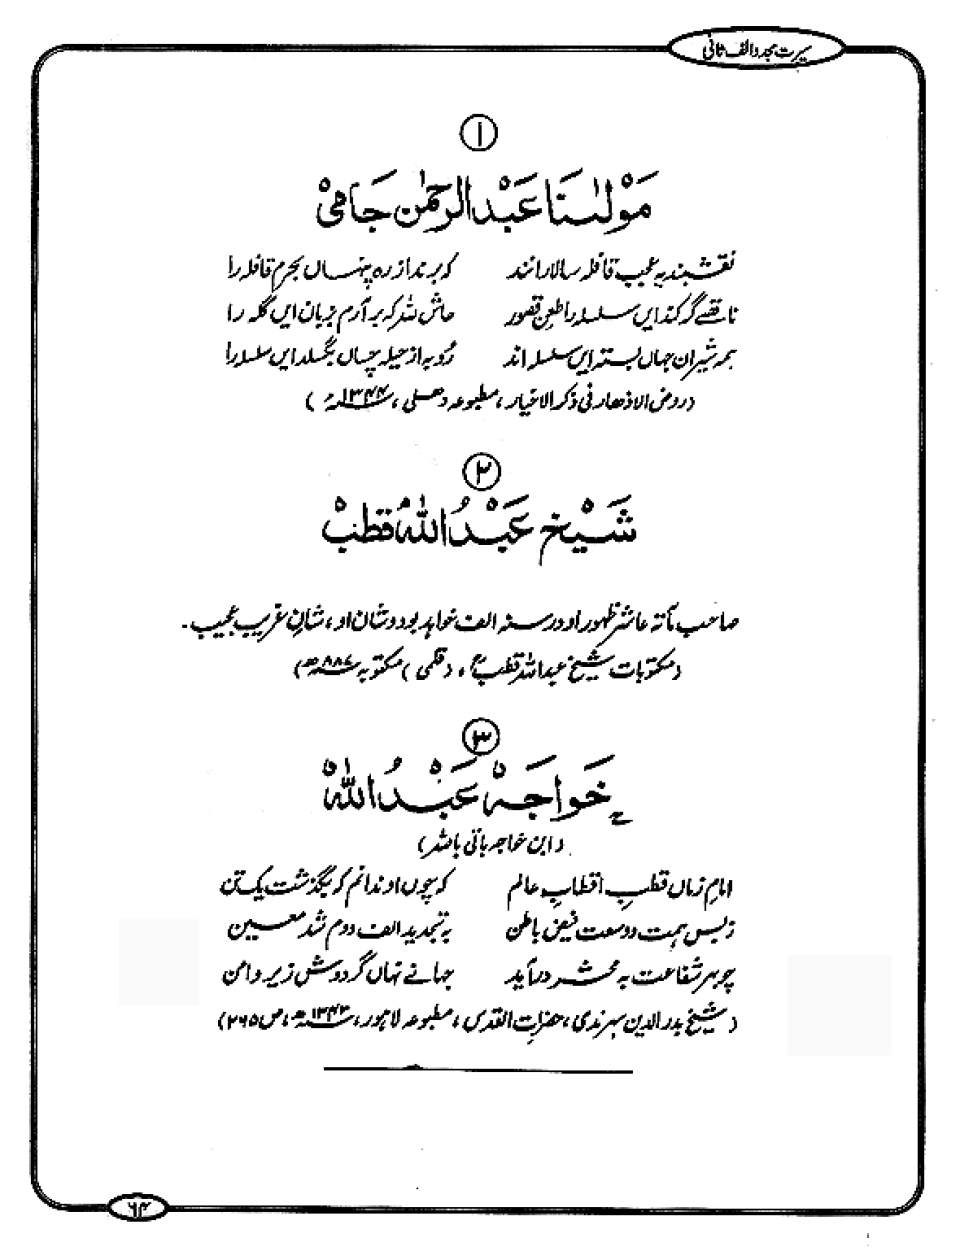 سیرت مجدد الف ثانی
۱
مَوْلٰنَا عَبْدالرحمٰن جَامیْ
نقشبندیہ عجب قافلہ سالارانند    کہ برند از رہ پنہاں بحرم قافلہ را
ناقصے گر کند ایں سلسلہ را طعنِ قصور    حاش للہ کہ بر آرم بزبان ایں گلہ را
ہمہ شیران جہاں بستہ ایں سلسلہ اند    رُوبہ از حیلہ چساں بگسلد ایں سلسلہ را
(روض الازھار فی ذکر الاخیار، مطبوعہ دھلی،
۲
شَیْخ عَبْدُاللہُ قطبْ
صاحب مأتہ عاشر ظہور او در سنہ الف خواہد بود و شان او، شانِ غریب عجیب۔
(مکتوبات شیخ عبداللہ قطبؒ، (قلمی) مکتوبہ ۸۸۷ھ)
۳
خَواجَہْ عَبْدُاللہْ
(ابن خواجہ باقی باللہ)
امامِ زماں قطبِ اقطابِ عالم    کہ ہچوں او ندانم کہ بگزشت یک تن
زبس ہمت و وسعت فیض باطن    بہ تجدید الف دوم شد معین
چو بہر شفاعت بہ محشر درآید    جہانے نہاں گردوش زیر دامن
(شیخ بدر الدین سہرندی، حضرات القدس، مطبوعہ لاہور، ص ۲۶۵)
۶۴